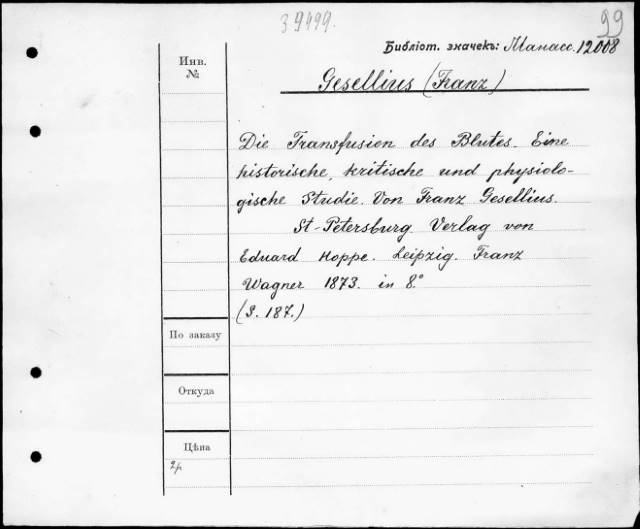 39499.
99
Библіот. значекъ: Манасс. 12008
Инв.
№
Gesellius (Franz)
Die Transfusion des Blutes. Eine
historische, kritische und physiolo-
gische Studie. Von Franz Gesellius.
St-Petersburg. Verlag von
Eduard Hoppe. Leipzig. Franz
Wagner 1873. in 8.°
(S. 187.)
По заказу
Откуда
Цѣна
2р